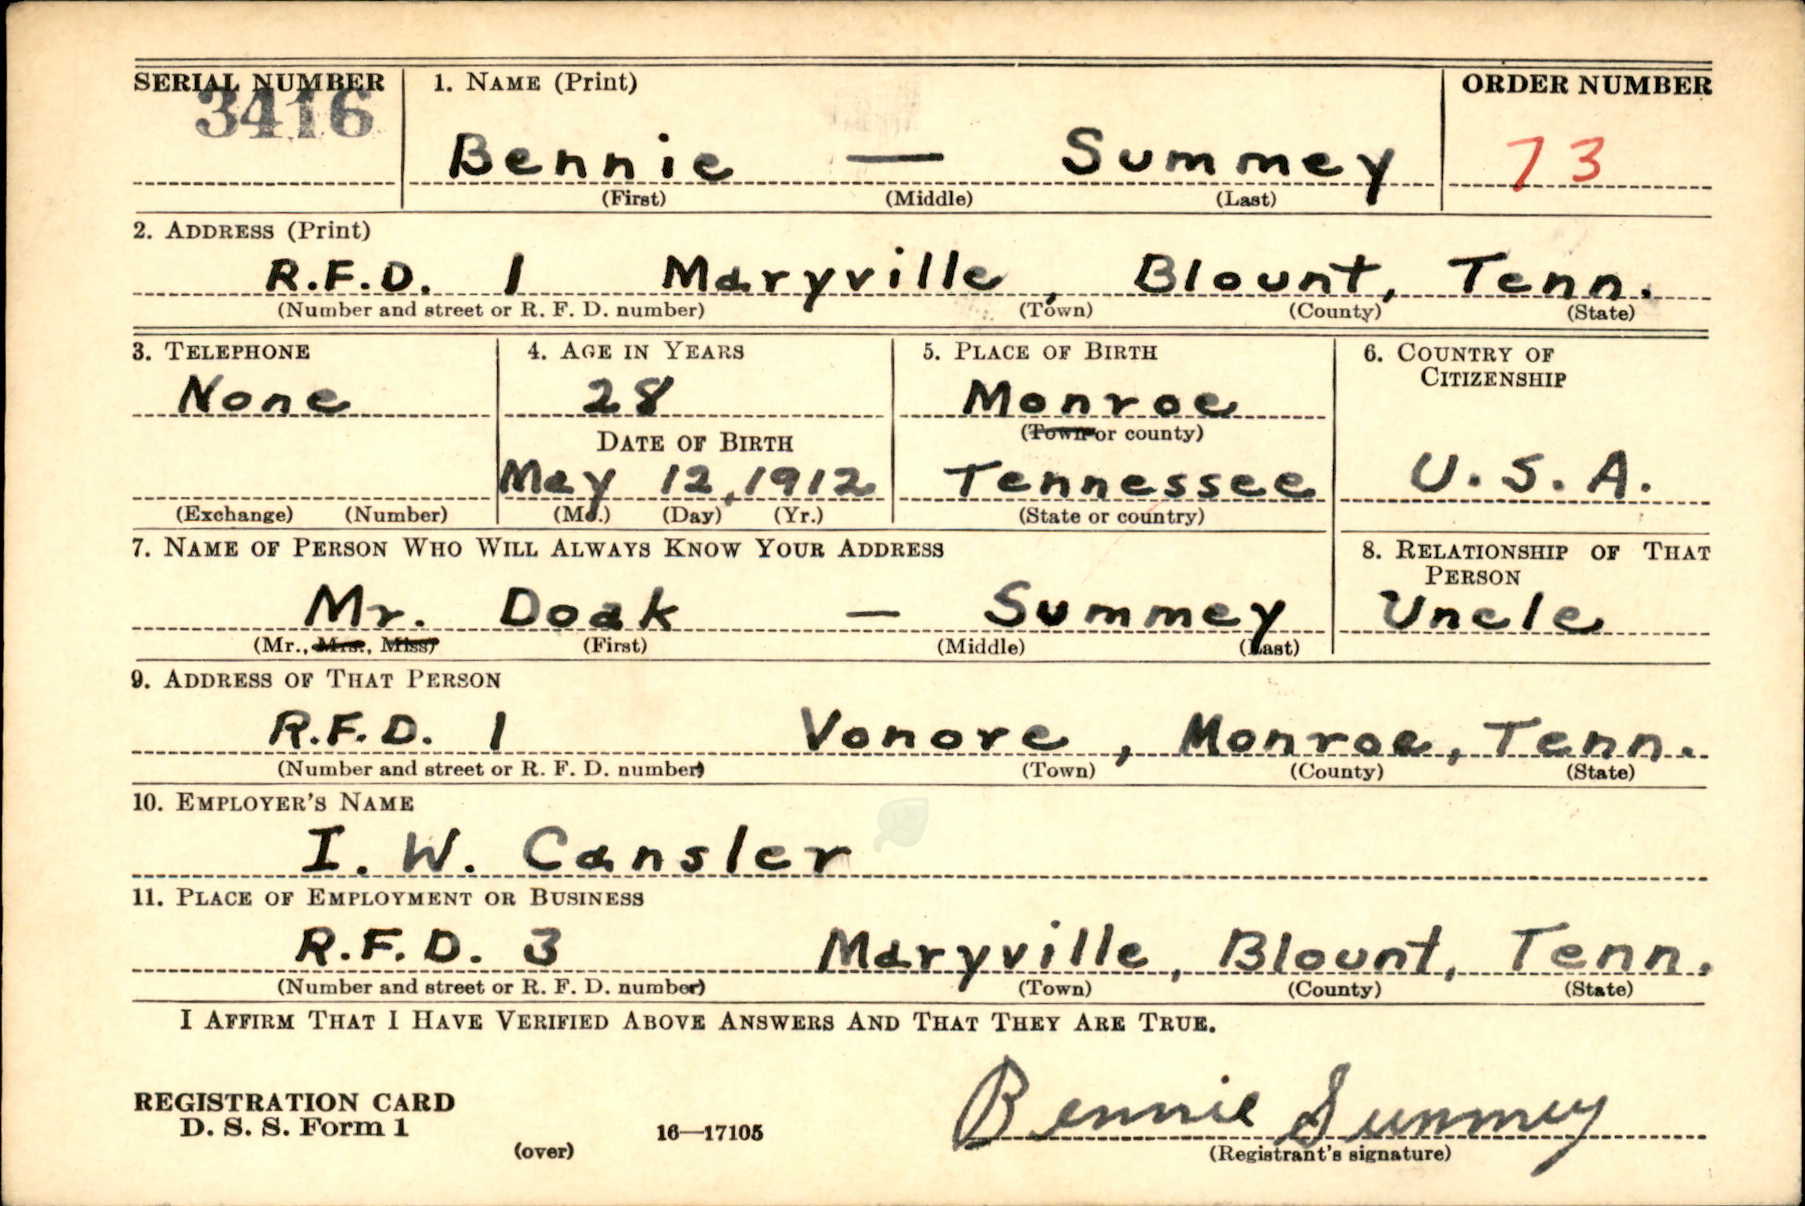 SERIAL NUMBER 1. NAME (Print) ORDER NUMBER
3416
Bennie — Summey 73
(First) (Middle) (Last)
2. ADDRESS (Print)
R.F.D. 1 Maryville, Blount, Tenn.
(Number and street or R. F. D. number) (Town) (County) (State)
3. TELEPHONE 4. AGE IN YEARS 5. PLACE OF BIRTH 6. COUNTRY OF
CITIZENSHIP
None 28 Monroe
(Town or county)
DATE OF BIRTH
May 12, 1912 Tennessee U.S.A.
(Exchange) (Number) (Mo.) (Day) (Yr.) (State or country)
7. NAME OF PERSON WHO WILL ALWAYS KNOW YOUR ADDRESS 8. RELATIONSHIP OF THAT
PERSON
Mr. Doak — Summey Uncle
(Mr., Mrs., Miss) (First) (Middle) (Last)
9. ADDRESS OF THAT PERSON
R.F.D. 1 Vonore, Monroe, Tenn.
(Number and street or R. F. D. number) (Town) (County) (State)
10. EMPLOYER'S NAME
I. W. Cansler
11. PLACE OF EMPLOYMENT OR BUSINESS
R.F.D. 3 Maryville, Blount, Tenn.
(Number and street or R. F. D. number) (Town) (County) (State)
I AFFIRM THAT I HAVE VERIFIED ABOVE ANSWERS AND THAT THEY ARE TRUE.
REGISTRATION CARD
D. S. S. Form 1
(over) 16—17105
Bennie Summey
(Registrant's signature)